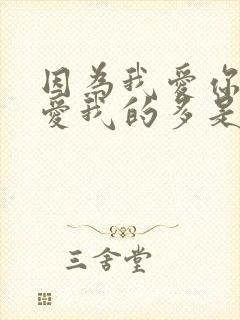 因为我爱你
爱我的多是
三舍堂